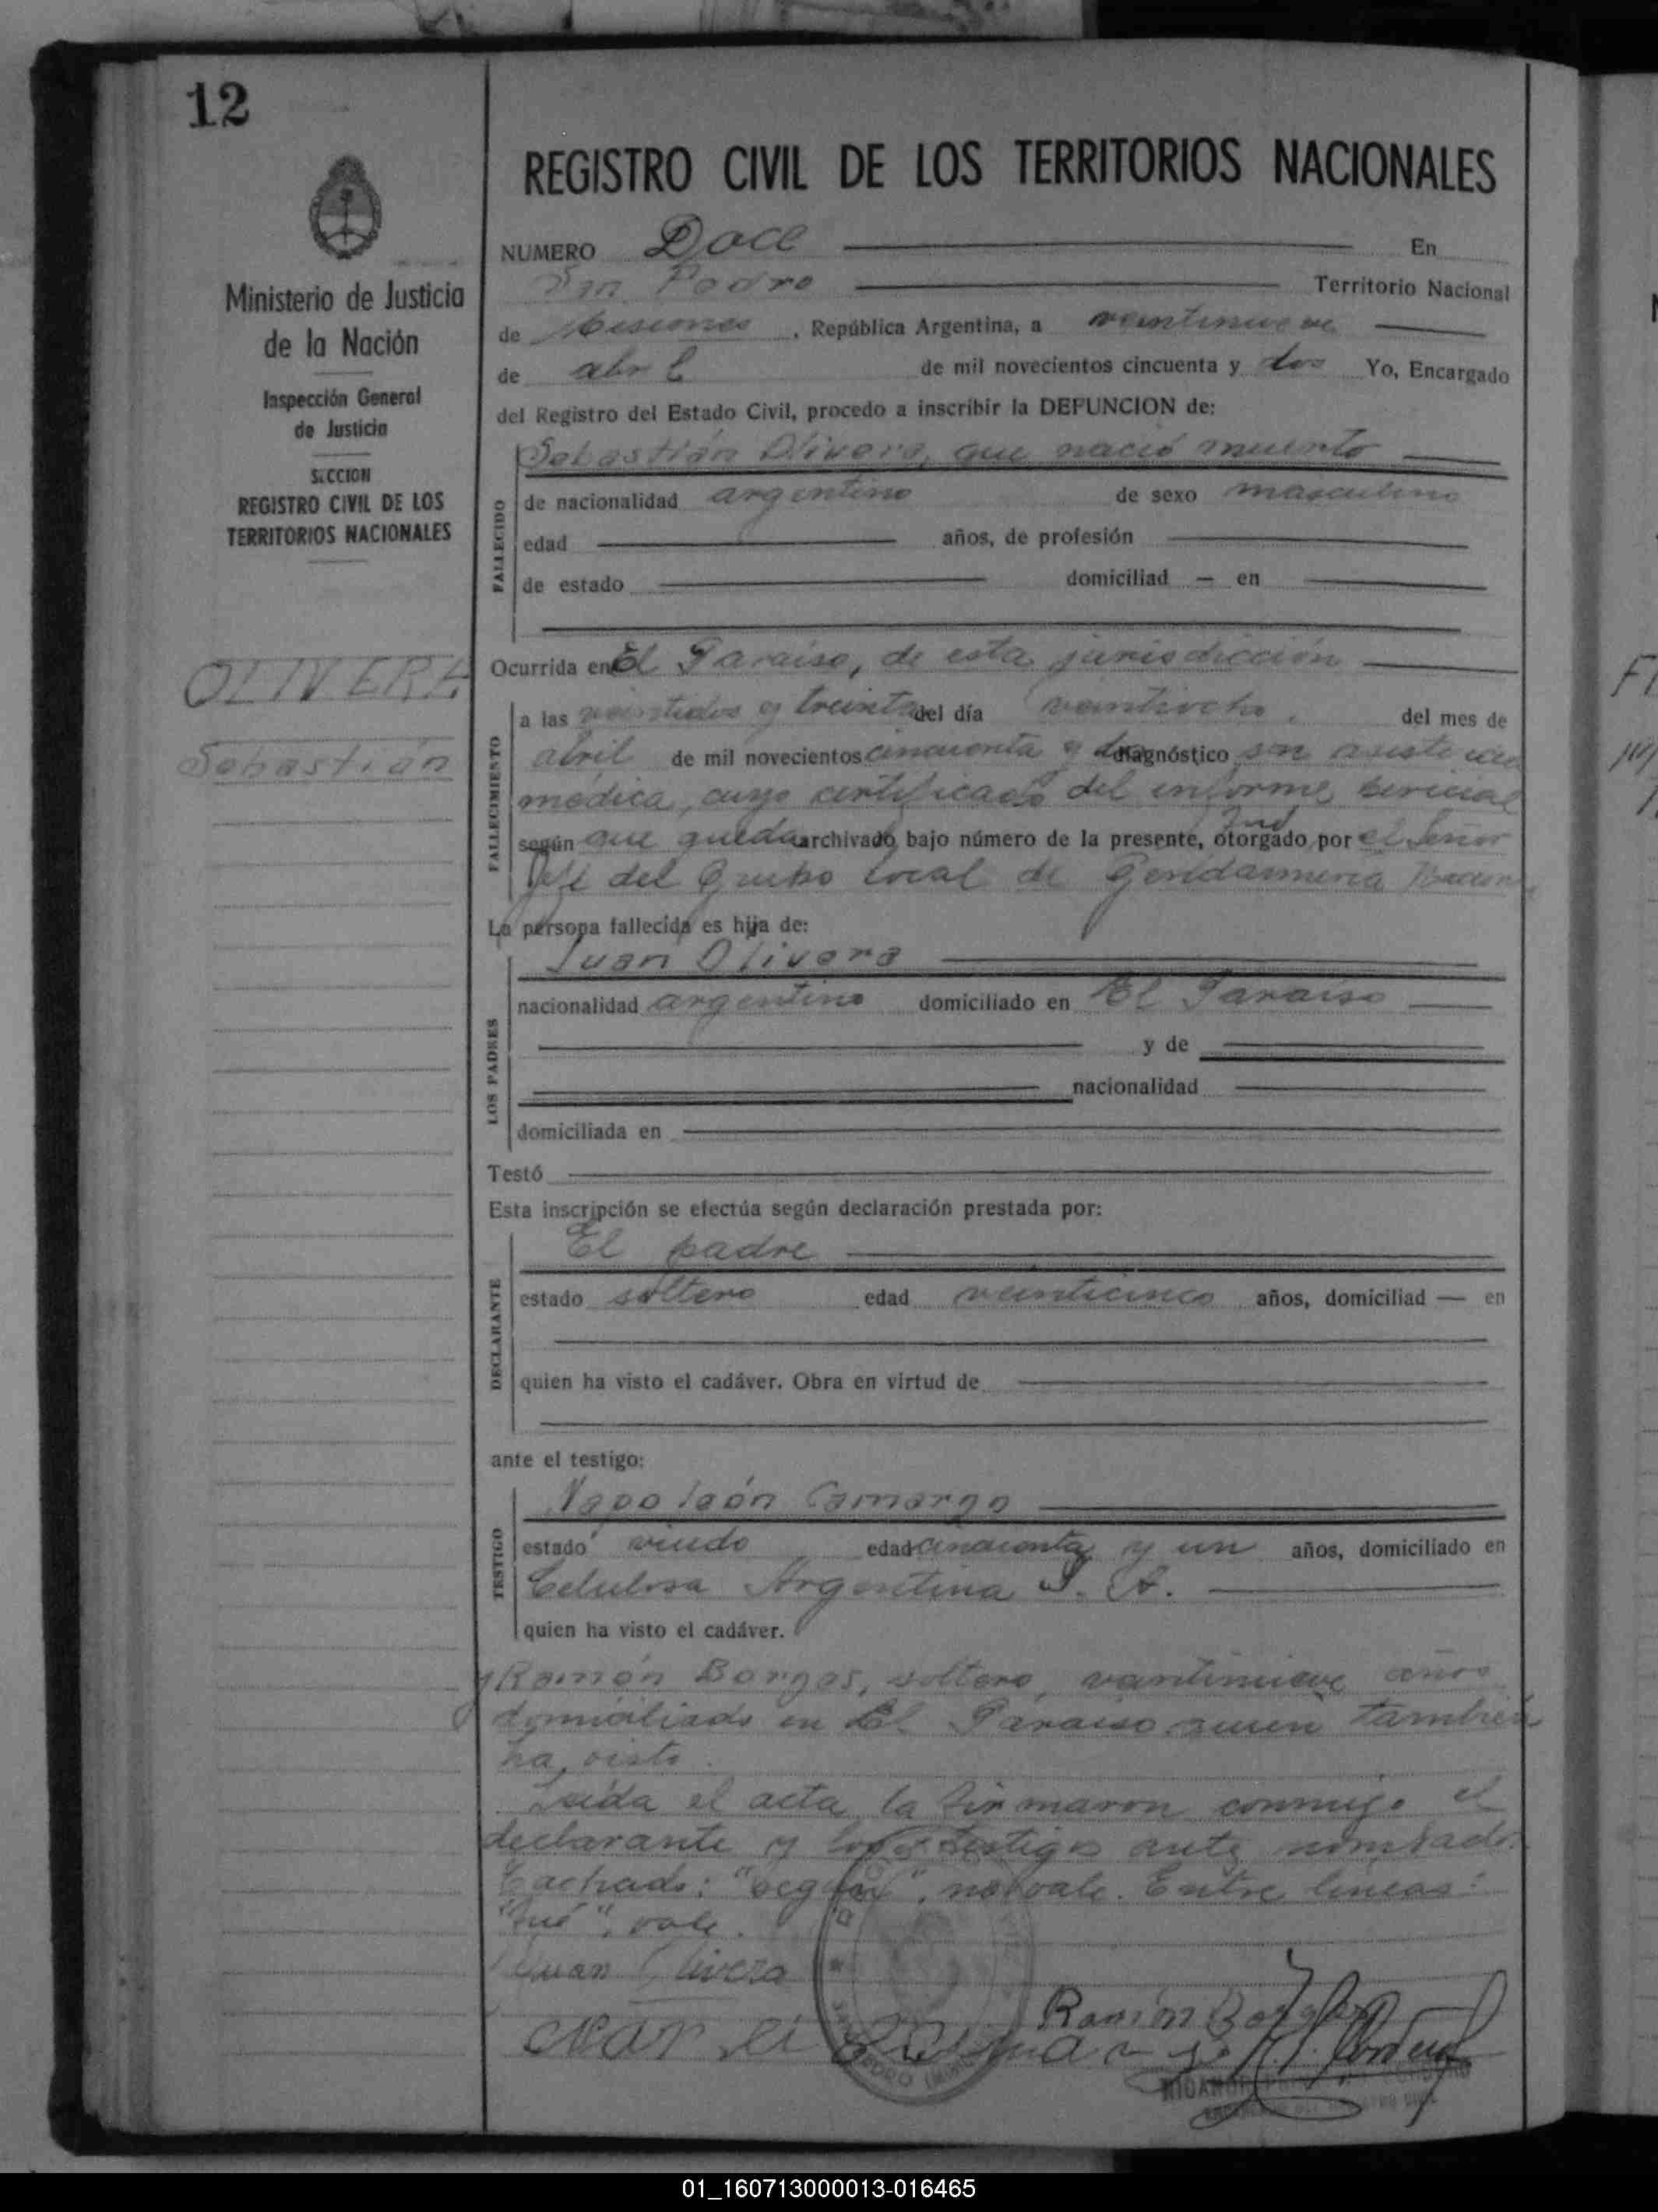 12
Ministerio de Justicia
de la Nación
Inspección General
de Justicia
SECCION
REGISTRO CIVIL DE LOS
TERRITORIOS NACIONALES
OLIVERA
Sebastián
REGISTRO CIVIL DE LOS TERRITORIOS NACIONALES
NUMERO Doce En
San Pedro Territorio Nacional
de Misiones, República Argentina, a veintinueve
de abril de mil novecientos cincuenta y dos Yo, Encargado
del Registro del Estado Civil, procedo a inscribir la DEFUNCION de:
Sebastián Olivera, que nació muerto
FALLECIDO
de nacionalidad argentino de sexo masculino
edad años, de profesión
de estado domiciliad — en
Ocurrida en El Paraiso, de esta jurisdicción
FALLECIMIENTO
a las veintidos y treinta del día veintiocho, del mes de
abril de mil novecientos cincuenta y dos diagnóstico sin asistencia
médica, cuyo certificado del informe pericial
fué
según que queda archivado bajo número de la presente, otorgado por el Señor
Jefe del Grupo local de Gendarmeria
La persona fallecida es hija de:
LOS PADRES
Juan Olivera
nacionalidad argentino domiciliado en El Paraiso
y de
nacionalidad
domiciliada en
Testó
Esta inscripción se efectúa según declaración prestada por:
DECLARANTE
El padre
estado soltero edad veinticinco años, domiciliad — en
quien ha visto el cadáver. Obra en virtud de
ante el testigo:
TESTIGO
Napoleón Camargo
estado viudo edad cincuenta y un años, domiciliado en
Celulosa Argentina S. A.
quien ha visto el cadáver.
y Ramón Borges, soltero, veintinueve años
domiciliado en El Paraiso quien también
ha visto.
Leída el acta la firmaron conmigo el
declarante y los testigos ante nombrado.
Tachado: "según", no vale. Entre líneas:
"fué", vale.
Juan Olivera
Ramón Borges
01_160713000013-016465